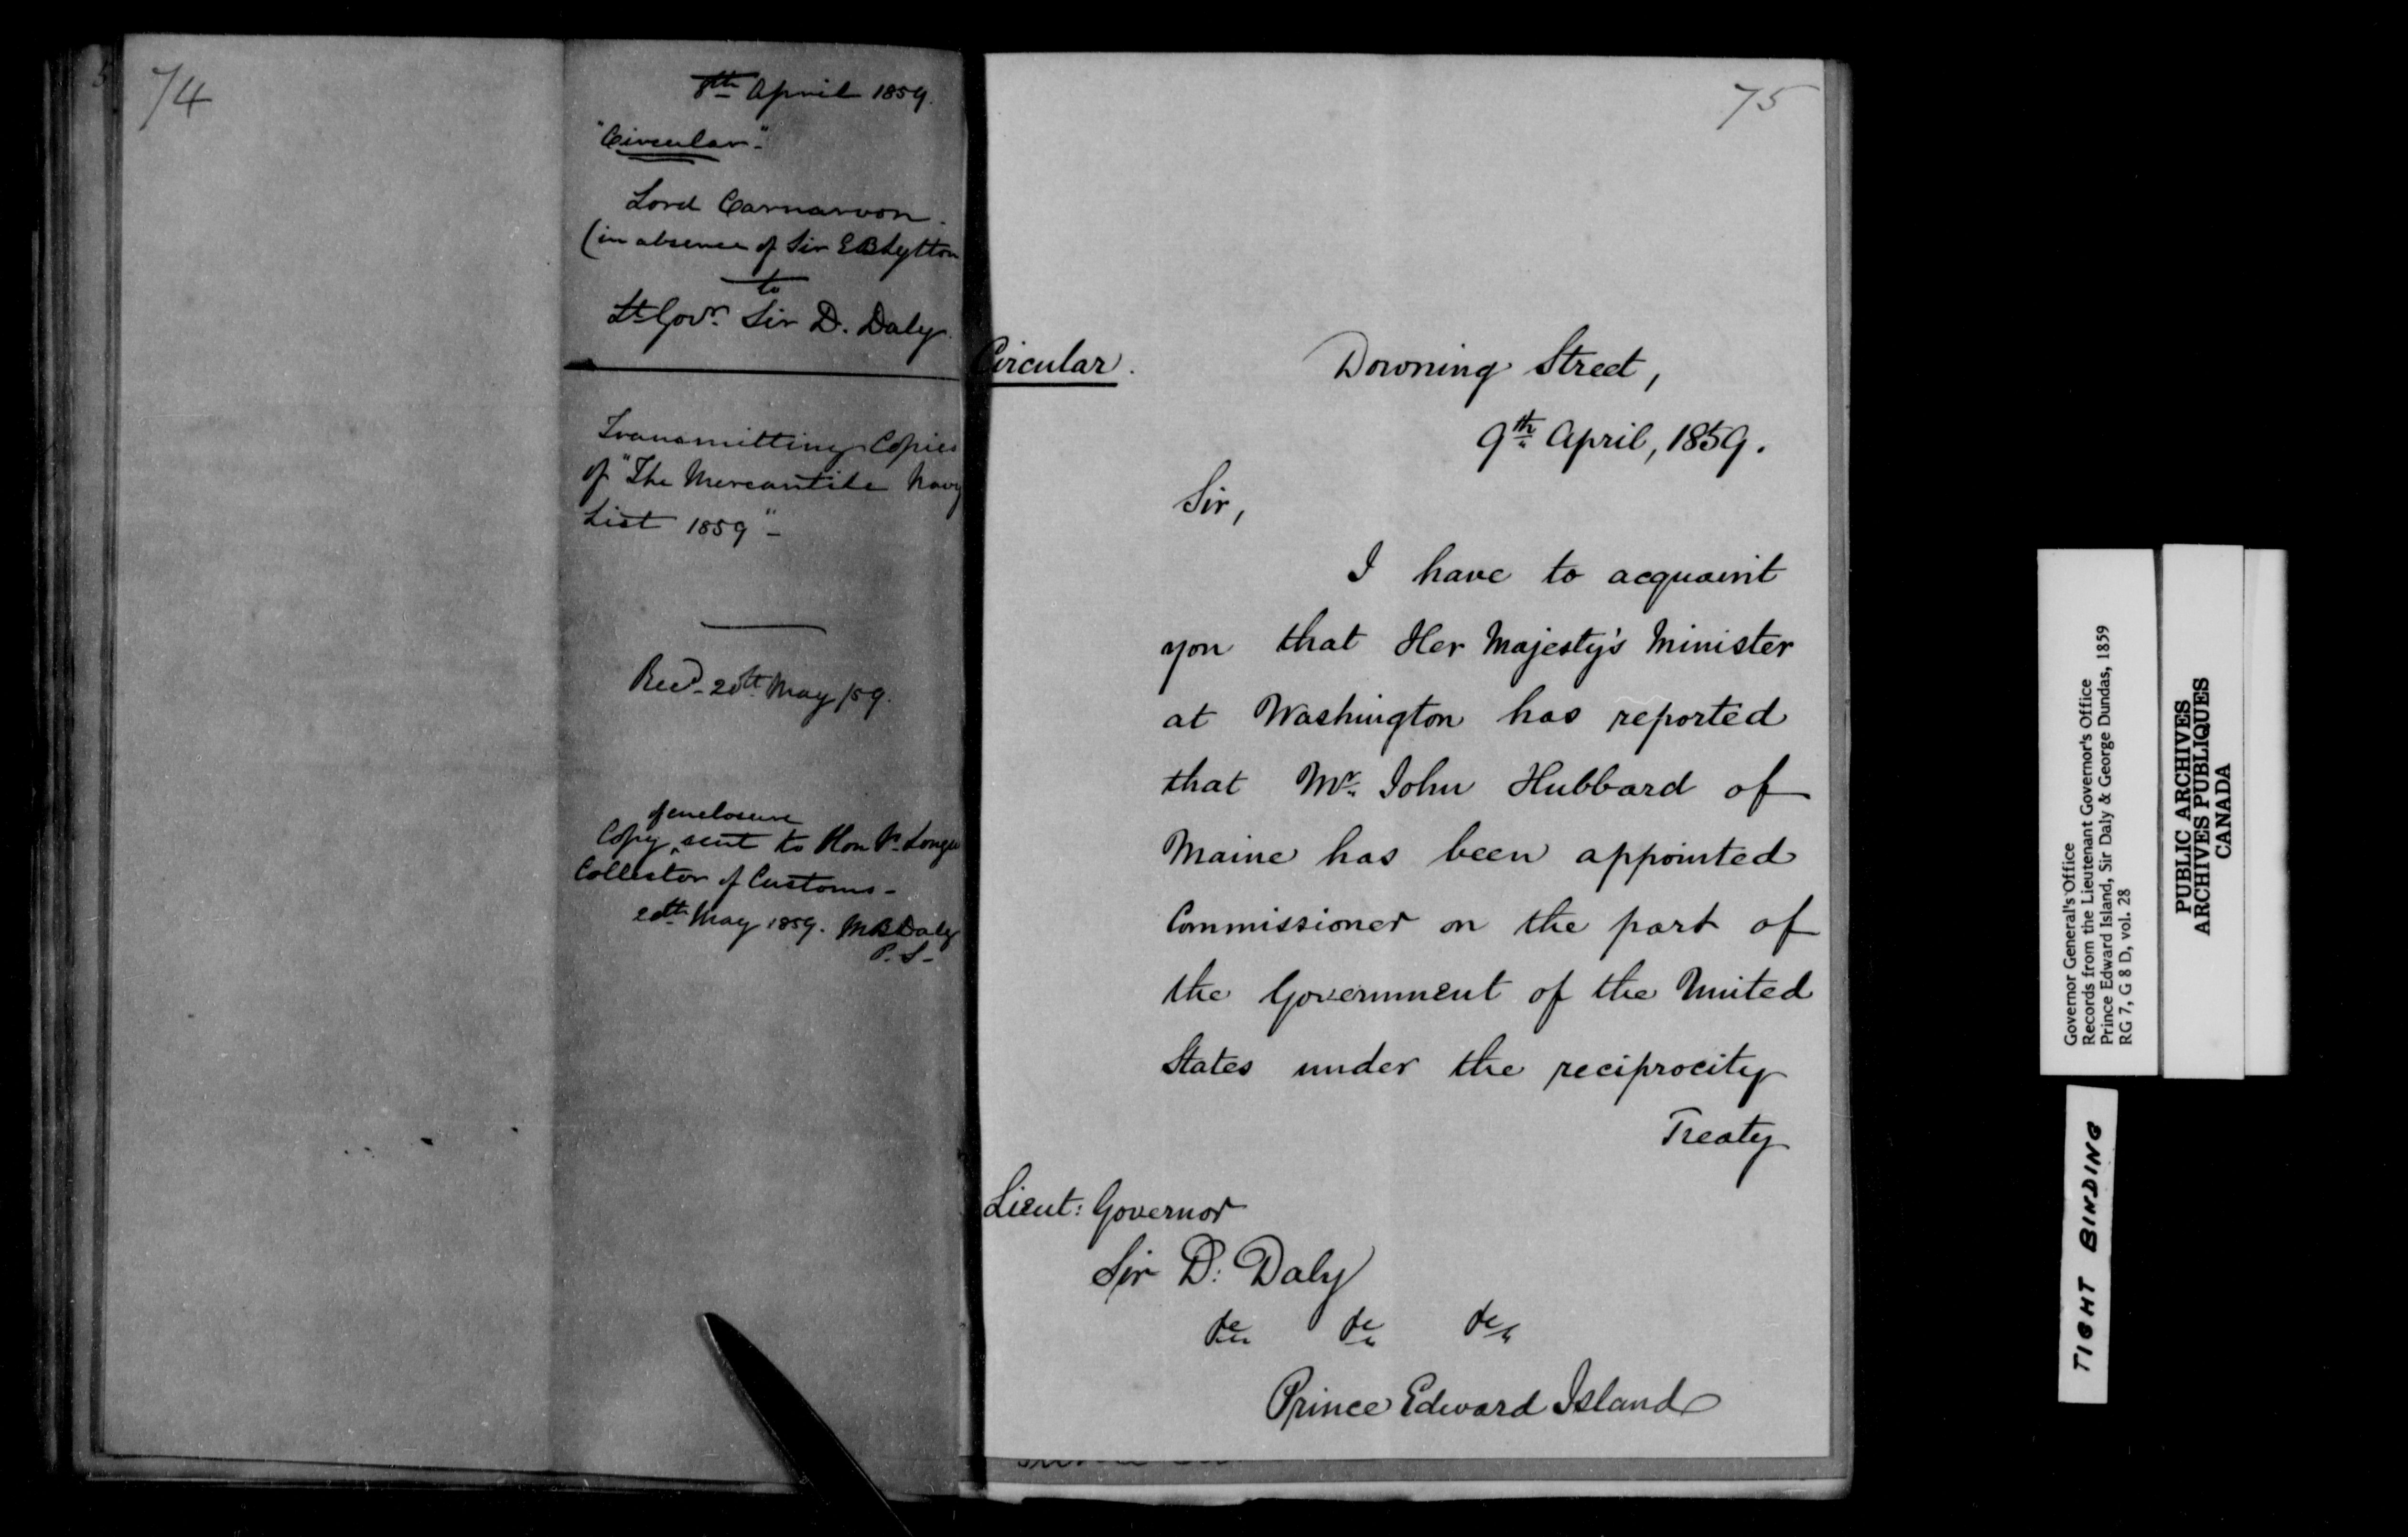 74
8th April 1859.
"Circular".
Lord Carnarvon.
(in absence of Sir E B Lytton
to
Lt Govr. Sir D. Daly.
Transmitting Copies
of "The Mercantile Navy
List 1859" -
Recd. 20th May /59.
of enclosure
Copy ‸ sent to Hon
Collector of Customs -
20th May 1859. MB Daly
P. S -
75
Circular.
Downing Street,
9th April, 1859.
Sir,
I have to acquaint
you that Her Majesty's Minister
at Washington has reported
that Mr. John Hubbard of
Maine has been appointed
Commissioner on the part of
the Government of the United
States under the reciprocity
Treaty
Lieut: Governor
Sir D: Daly
&c &c &c
Prince Edward Island
Governor General's Office
Records from the Lieutenant Governor's Office
Prince Edward Island, Sir Daly & George Dundas, 1859
RG 7, G 8 D, vol. 28
PUBLIC ARCHIVES
ARCHIVES PUBLIQUES
CANADA
TIGHT BINDING